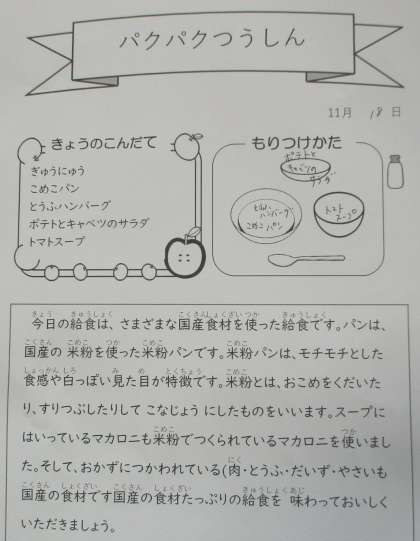 パクパクつうしん
11月 18 日
きょうのこんだて
ぎゅうにゅう
こめこパン
とうふハンバーグ
ポテトとキャベツのサラダ
トマトスープ
もりつけかた
ポテトと
キャベツの
サラダ
とうふ
ハンバーグ
こめこ パン
トマト
スープ
今日の給食は、さまざまな国産食材を使った給食です。パンは、
国産の 米粉を使った米粉パンです。米粉パンは、モチモチとした
食感や白っぽい見た目が特徴です。米粉とは、おこめをくだいた
り、すりつぶしたりして こなじょう にしたものをいいます。スープに
はいっているマカロニも米粉でつくられているマカロニを使いまし
た。そして、おかずにつかわれている(肉・とうふ・だいず・やさいも
国産の食材です国産の食材たっぷりの給食を 味わっておいしく
いただきましょう。